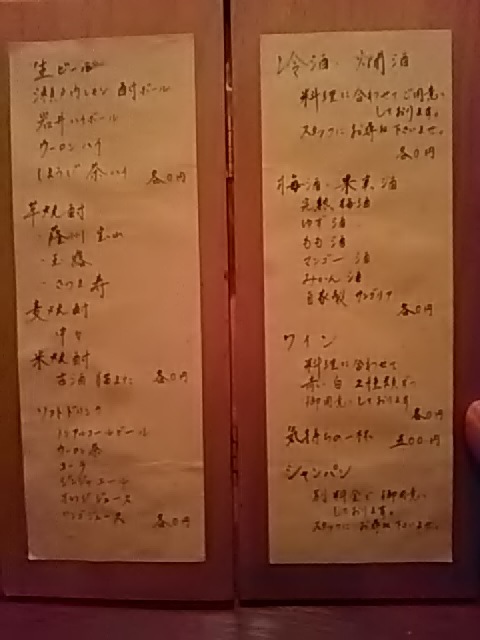 生ビール
瀬戸内レモン酎ボール
岩井ハイボール
ウーロンハイ
ほうじ茶ハイ 各0円
芋焼酎
・薩州 赤兎馬
・さつま寿
麦焼酎
中々
米焼酎
古酒 各0円
ソフトドリンク
ノンアルコールビール
ウーロン茶
コーラ
ジンジャエール
オレンジジュース
ジュース 各0円
冷酒・燗酒
料理に合わせてご用意
しております。
スタッフにお尋ね下さいませ。
各0円
梅酒・果実酒
完熟梅酒
ゆず酒
もも酒
マンゴー酒
みかん酒
自家製サングリア
各0円
ワイン
料理に合わせて
赤・白 2種類ずつ
御用意しております
各0円
気持ちの一杯 五00円
シャンパン
別料金で御用意
しております。
スタッフにお尋ね下さいませ。